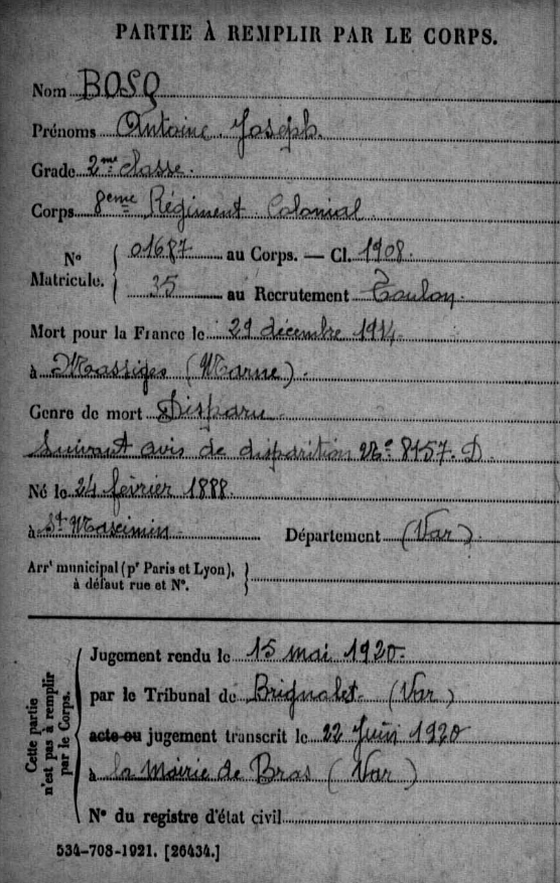 PARTIE À REMPLIR PAR LE CORPS.
Nom BOSQ
Prénoms Antoine Joseph.
Grade 2me classe.
Corps 8eme Régiment Colonial
No Matricule. { 01687 au Corps. — Cl. 1908.
35 au Recrutement Toulon.
Mort pour la France le 29 décembre 1914.
à Massiges (Marne).
Genre de mort Disparu
Suivant avis de disparition No 8157. D
Né le 24 février 1888.
à St Maximin Département (Var).
Arrt municipal (pr Paris et Lyon), }
à défaut rue et No.
Cette partie n'est pas à remplir par le Corps.
Jugement rendu le 15 mai 1920.
par le Tribunal de Brignoles. (Var)
acte ou jugement transcrit le 22 Juin 1920
à la Mairie de Bras (Var)
No du registre d'état civil
534-708-1921. [26434.]